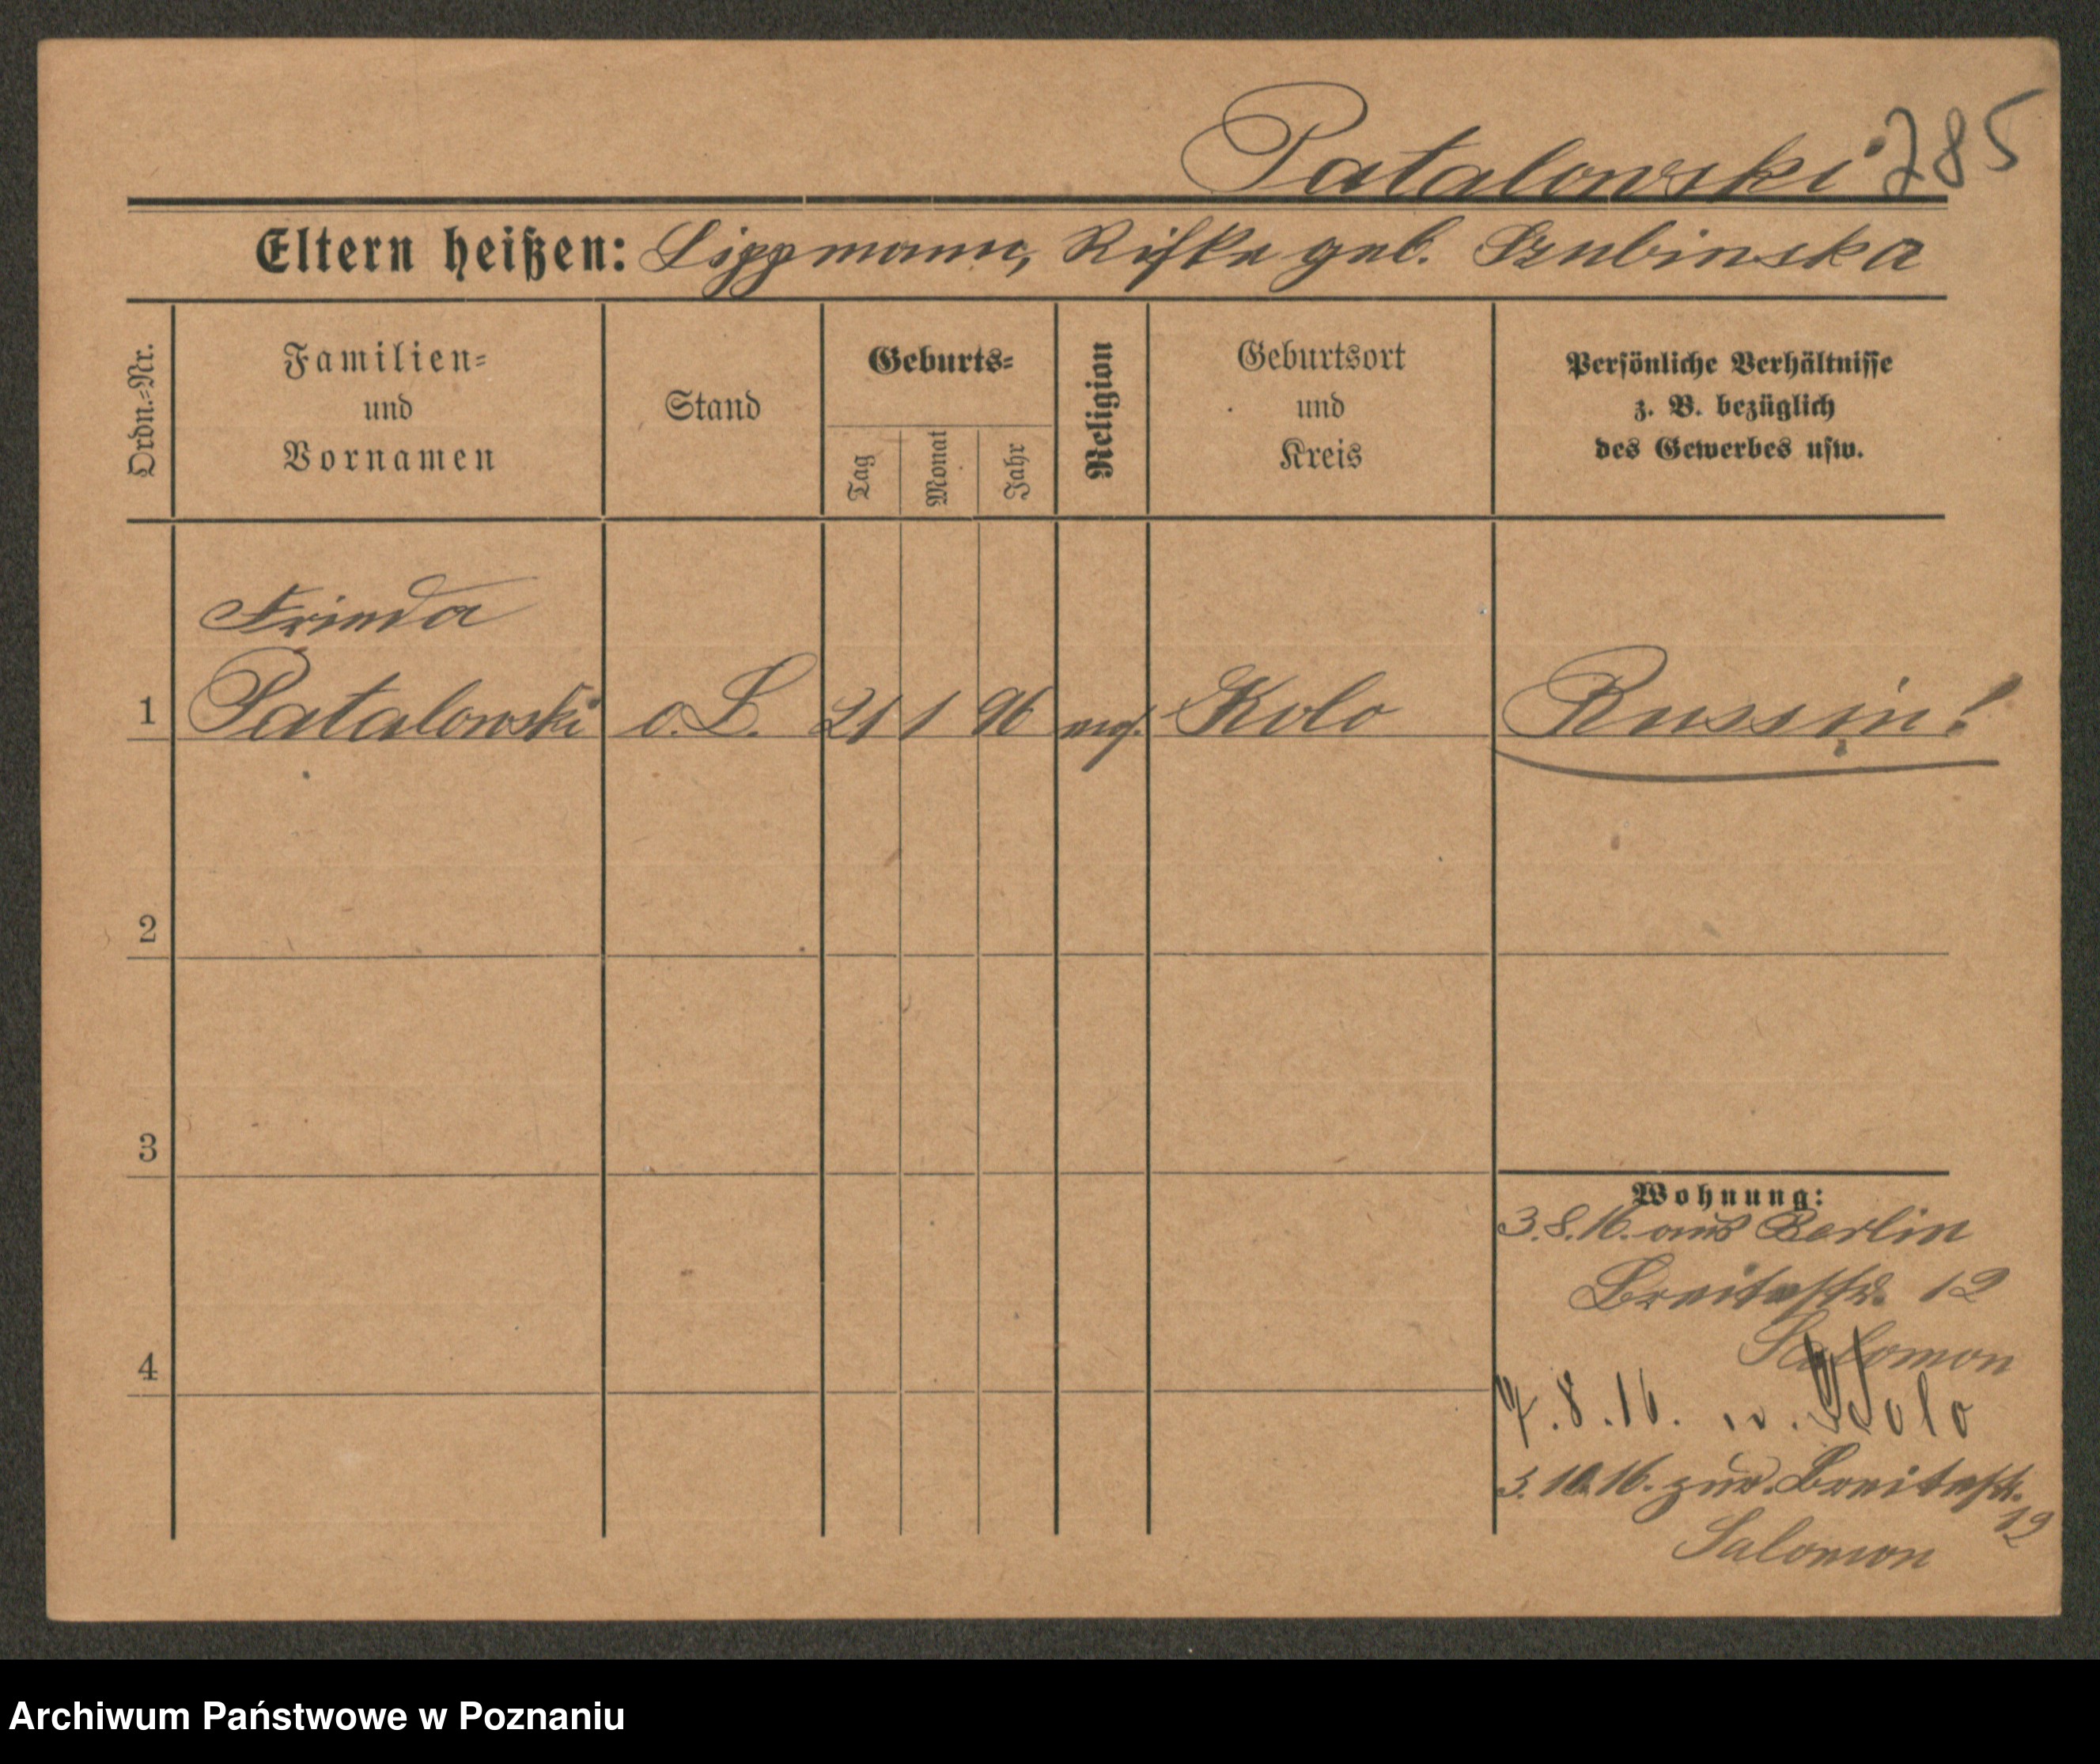 Patalowski 285
Eltern heißen: Lippmann, Rifka geb. Szubinska
Ordn.-Nr.
Familien-
und
Vornamen
Stand
Geburts-
Tag
Monat
Jahr
Religion
Geburtsort
und
Kreis
Persönliche Verhältnisse
z. B. bezüglich
des Gewerbes usw.
Frieda
1 Patalowski o.S. 21 1 96 mos. Kolo Russin!
2
3
4
Wohnung:
3.8.16. aus Berlin
Breitestr. 12
Salomon
7.8.16. n. Kolo
3.10.16. zur. Breitestr.
12
Salomon
Archiwum Państwowe w Poznaniu